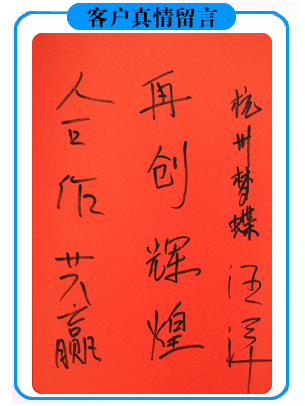 客户真情留言
合作共赢
再创辉煌
杭州梦蝶